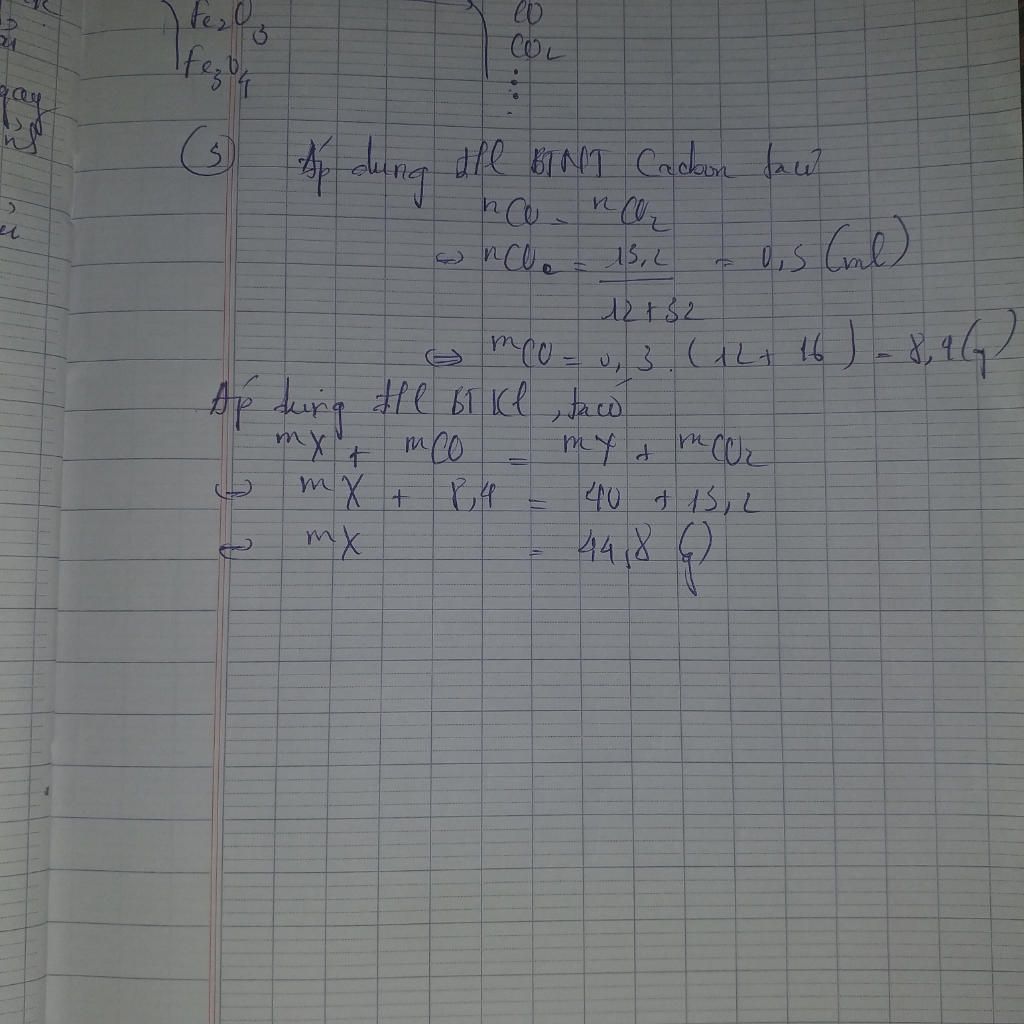 Fe2O3
CO
Fe3O4
CO2
⋮
(3) Áp dụng đll BTNT Cacbon ta có
nCO = nCO2
⇔ nCO2 = 13,2 / 12+32 = 0,3 (ml)
⇔ mCO = 0,3 . (12+ 16) = 8,4 (g)
Áp dụng đll BTKl, ta có
mX + mCO = mY + mCO2
⇔ mX + 8,4 = 40 + 13,2
⇔ mX = 44,8 (g)